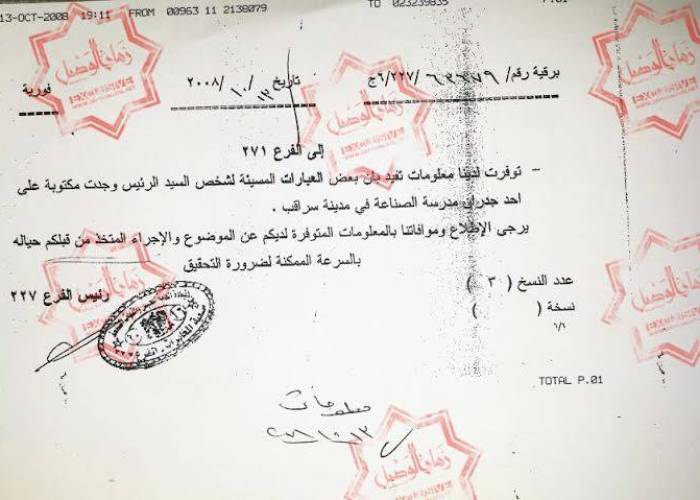 13-OCT-2008 19:11 FROM 00963 11 2138079 TO 023239835 P.01
برقية رقم/ ٦٣٦٧٩ /٦/٢٢٧ج تاريخ ١٣/ ١٠/ ٢٠٠٨ فورية
إلى الفرع ٢٧١
– توفرت لدينا معلومات تفيد بان بعض العبارات المسيئة لشخص السيد الرئيس وجدت مكتوبة على
احد جدران مدرسة الصناعة في مدينة سراقب .
يرجى الإطلاع وموافاتنا بالمعلومات المتوفرة لديكم عن الموضوع والإجراء المتخذ من قبلكم حياله
بالسرعة الممكنة لضرورة التحقيق
عدد النسخ ( ٣ ) رئيس الفرع ٢٢٧
نسخة ( )
١/١
TOTAL P.01
معلومات
زمان الوصل